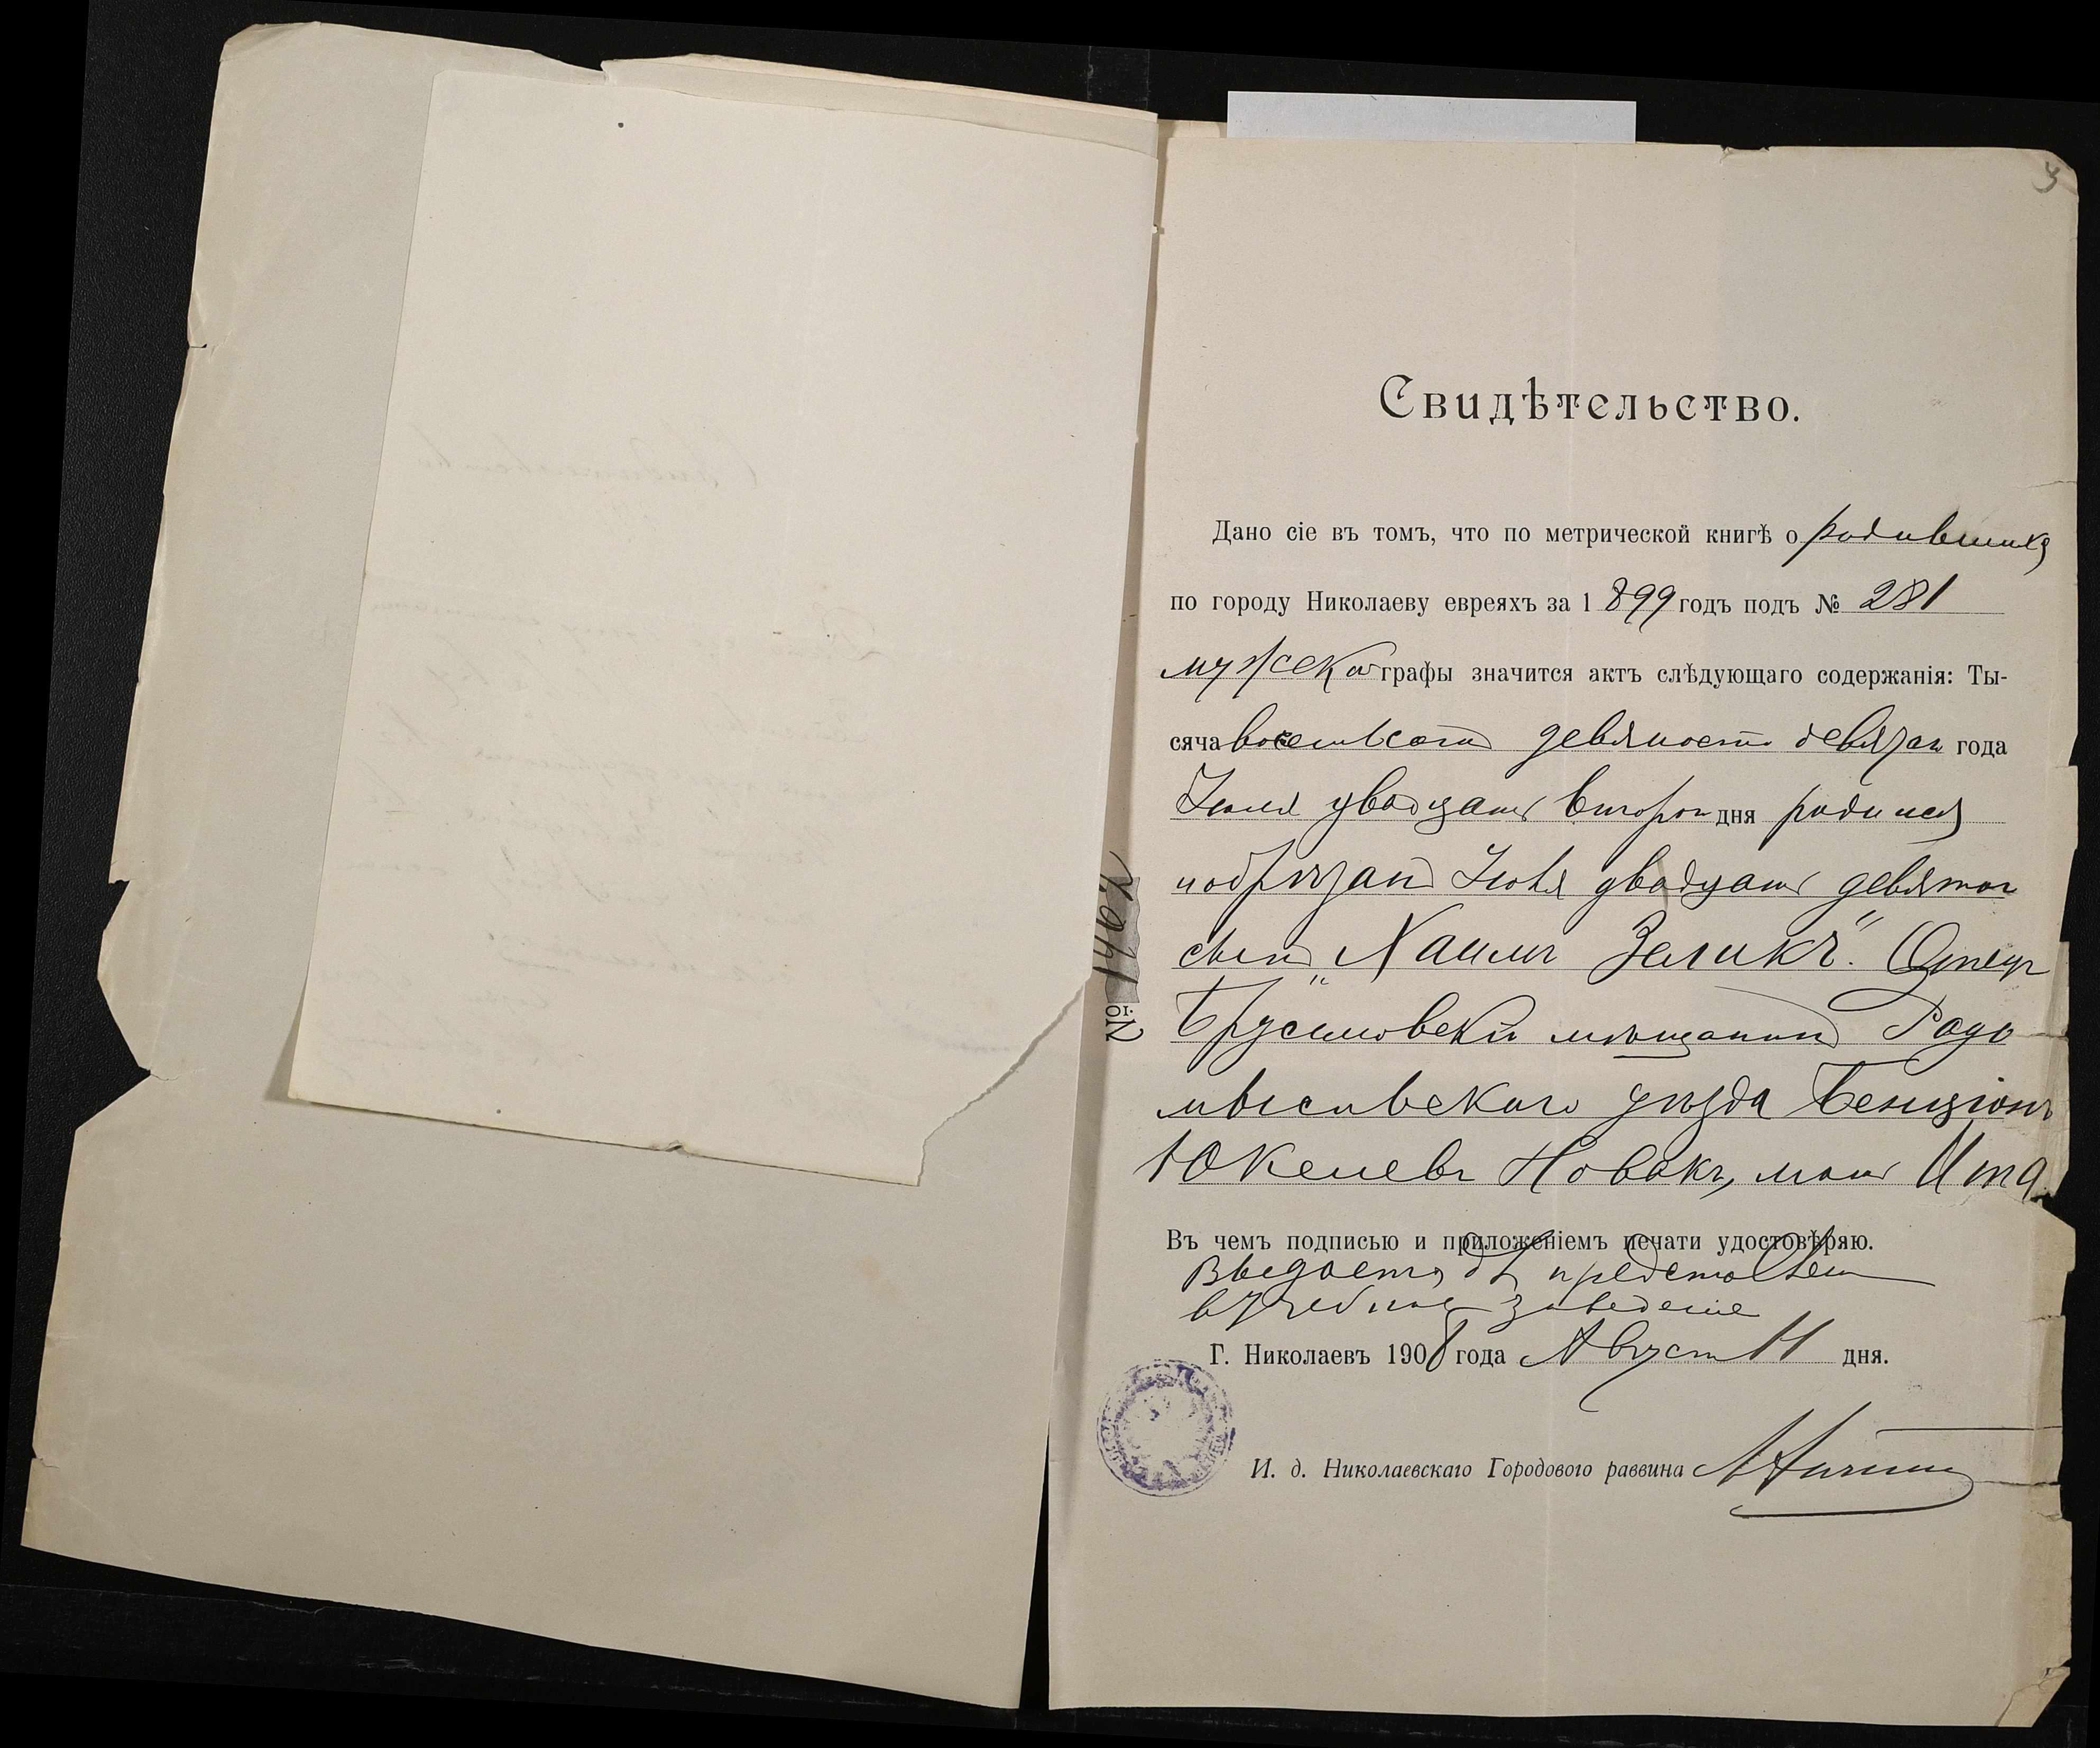 3
Свидѣтельство.
Дано сіе въ томъ, что по метрической книгѣ о родившихся
по городу Николаеву евреяхъ за 1899 годъ подъ № 281
мужской графы значится актъ слѣдующаго содержанія: Ты-
сяча восемьсотъ девяносто девятаго года
Іюля двадцать второго дня родился
и обрѣзанъ Іюля двадцать девятаго
сынъ „Хаимъ Зеликъ". Отецъ
Брусиловскій мѣщанинъ Радо
мысльскаго уѣзда Бенціонъ
Юкелевъ Новакъ, мать Ита.
Въ чемъ подписью и приложеніемъ печати удостовѣряю.
Выдается для представленія
въ учебное заведеніе
Г. Николаевъ 1908 года Августа 11 дня.
И. д. Николаевскаго Городового раввина
№ 14462